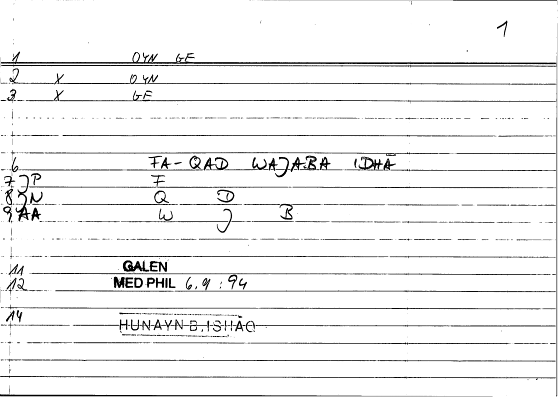 1
1 OYN GE
2 X OYN
3 X GE
6 FA-QAD WAJABA IDHĀ
7 JP F
8 JN Q D
9 AA W J B
11 GALEN
12 MED PHIL 6,9:94
14 HUNAYN B. ISHAQ